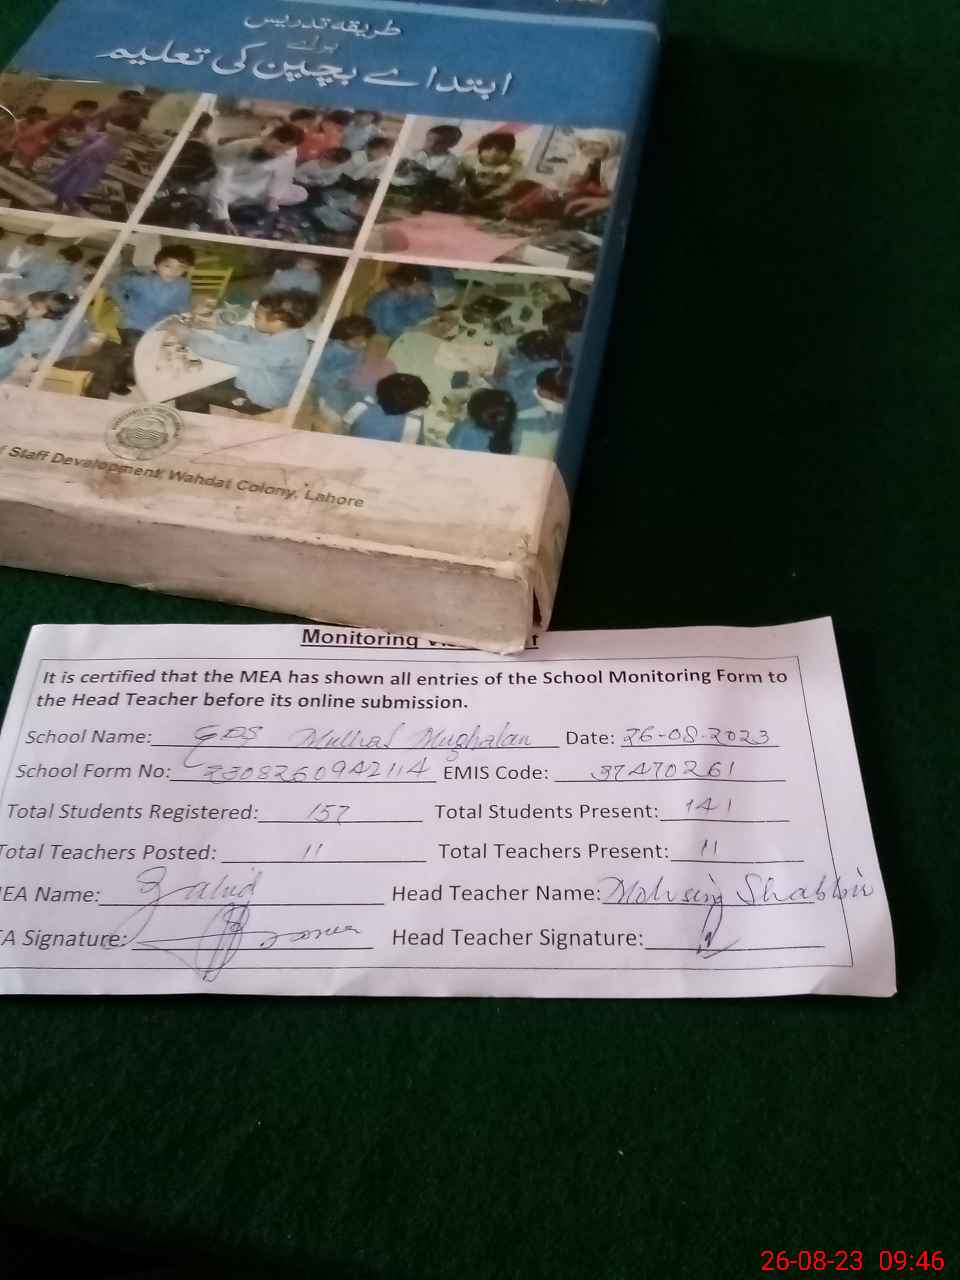 طریقہ تدریس
برائے
ابتدائے بچپن کی تعلیم
f Staff Development, Wahdat Colony, Lahore
Monitoring
It is certified that the MEA has shown all entries of the School Monitoring Form to
the Head Teacher before its online submission.
School Name: Mughalan Date: 26-08-2023
School Form No: 2308260942114 EMIS Code: 37470261
Total Students Registered: 157 Total Students Present: 141
Total Teachers Posted: 11 Total Teachers Present: 11
EA Name: Zahid Head Teacher Name: Mohsin Shabbir
A Signature: Head Teacher Signature:
26-08-23 09:46